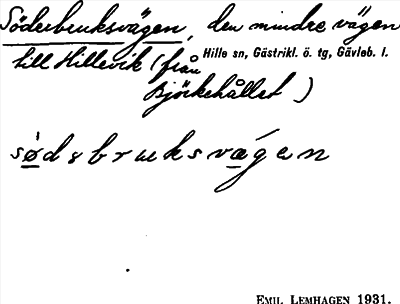 Söderbruksvägen, den mindre vägen
till Hillevik (från Hille sn, Gästrikl. ö. tg, Gävleb. l.
Björkehållet)
sødsbruksvægen
EMIL LEMHAGEN 1931.